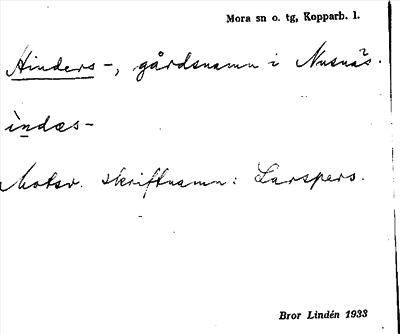 Mora sn o. tg, Kopparb. l.
Hinders-, gårdsnamn i Nusnäs.
ìndæs-
Motsv. skriftnamn: Larspers.
Bror Lindén 1933